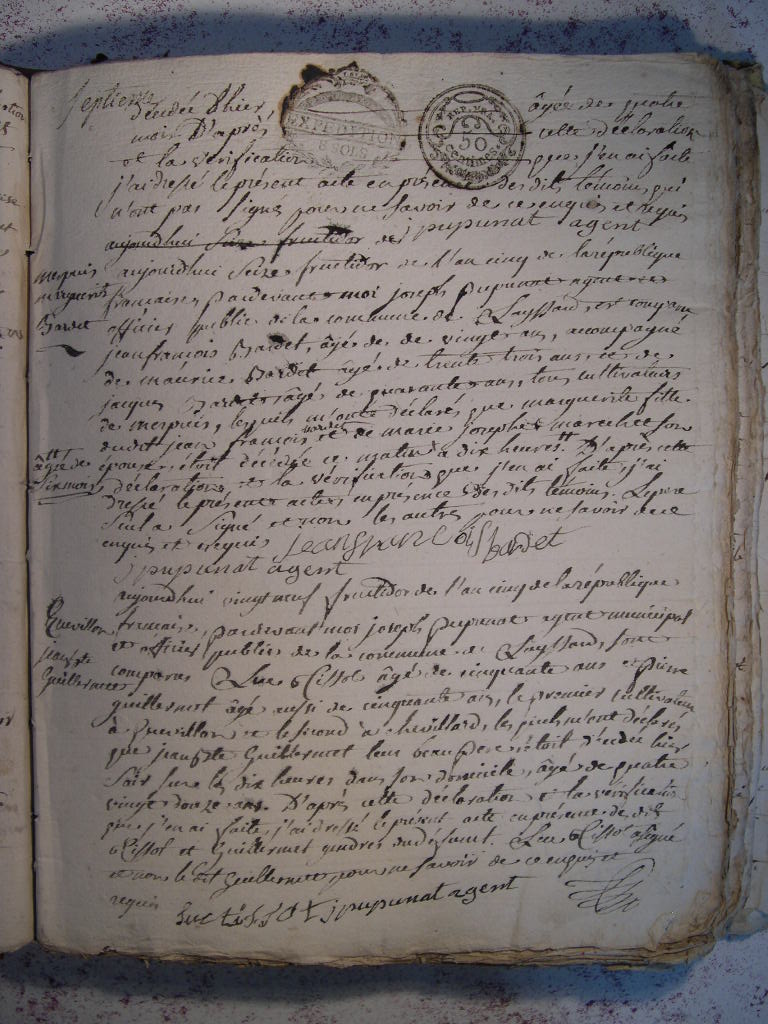 septieme
décédée d'hier âgée de quatre
mois D'après cette déclaration
EXPEDITION
8 SOLS
REP. FRA.
50
Centimes
et la vérification que j'en ai faite
j'ai dressé le présent acte en présence des dits témoins qui
n'ont pas signés pour ne savoir de ce enquis et requis
aujourdhui seize fructidor de jpupunat agent
aujourdhui seize fructidor de l'an cinq de la république
mespuis
marguerite
Bardet
francaise, pardevant moi joseph pupunat agent
officier public de la commune de Layssard, est comparu
jean francois Bardet, âgé de vingt ans, accompagné
de maurice Bardet âgé de trente trois ans et de
jacques Bardet âgé de quarante ans, tous cultivateurs
de mespuis, lesquels m'ont déclaré que marguerite fille
dudit jean francois Bardet et de marie josephe marechet son
épouse, étoit décédée ce matin à dix heures tt. D'après cette
tt
âgée de
six mois
déclaration et la vérification que j'en ai faite, j'ai
dressé le présent acte en présence des dits témoins. Le pere
seul a signé et non les autres pour ne savoir de ce
enquis et requis jean francois Bardet
jpupunat agent
aujourdhui vingt neuf fructidor de l'an cinq de la république
Quevillon
jean bte
Guillermet
francaise, pardevant moi joseph pupunat agent municipal
et officier public de la commune de Layssard, sont
comparus Luc tissot âgé de cinquante ans et pierre
guillermet âgé aussi de cinquante ans, le premier cultivateur
à Quevillon et le second à chevillard, lesquels m'ont déclarés
que jean bte Guillermet leur beau pere étoit décédé hier
soir sur les dix heures dans son domicile, âgé de quatre
vingt douze ans. D'après cette déclaration et la vérification
que j'en ai faite, j'ai dressé le présent acte en présence de dits
tissot et Guillermet gendres du défunt. Luc tissot a signé
et non le dit guillermet pour ne savoir de ce enquis et
requis luc tissot jpupunat agent